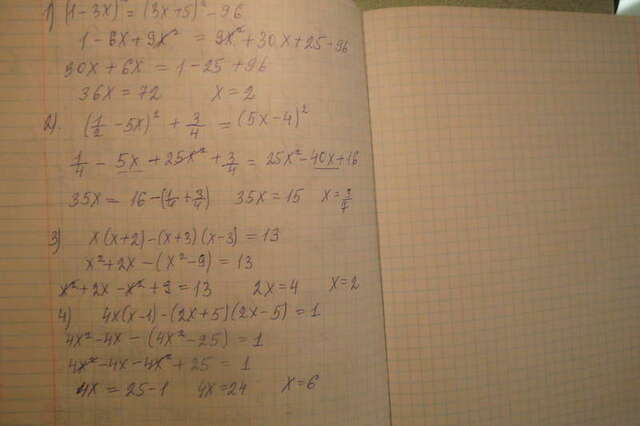 1) (1-3x)² = (3x+5)² - 96
1 - 6x + 9x² = 9x² + 30x + 25 - 96
30x + 6x = 1 - 25 + 96
36x = 72 x = 2
2). (1/2 - 5x)² + 3/4 = (5x - 4)²
1/4 - 5x + 25x² + 3/4 = 25x² - 40x + 16
35x = 16 - (1/4 + 3/4) 35x = 15 x = 3/7
3) x(x+2) - (x+3)(x-3) = 13
x² + 2x - (x² - 9) = 13
x² + 2x - x² + 9 = 13 2x = 4 x = 2
4) 4x(x-1) - (2x+5)(2x-5) = 1
4x² - 4x - (4x² - 25) = 1
4x² - 4x - 4x² + 25 = 1
4x = 25 - 1 4x = 24 x = 6